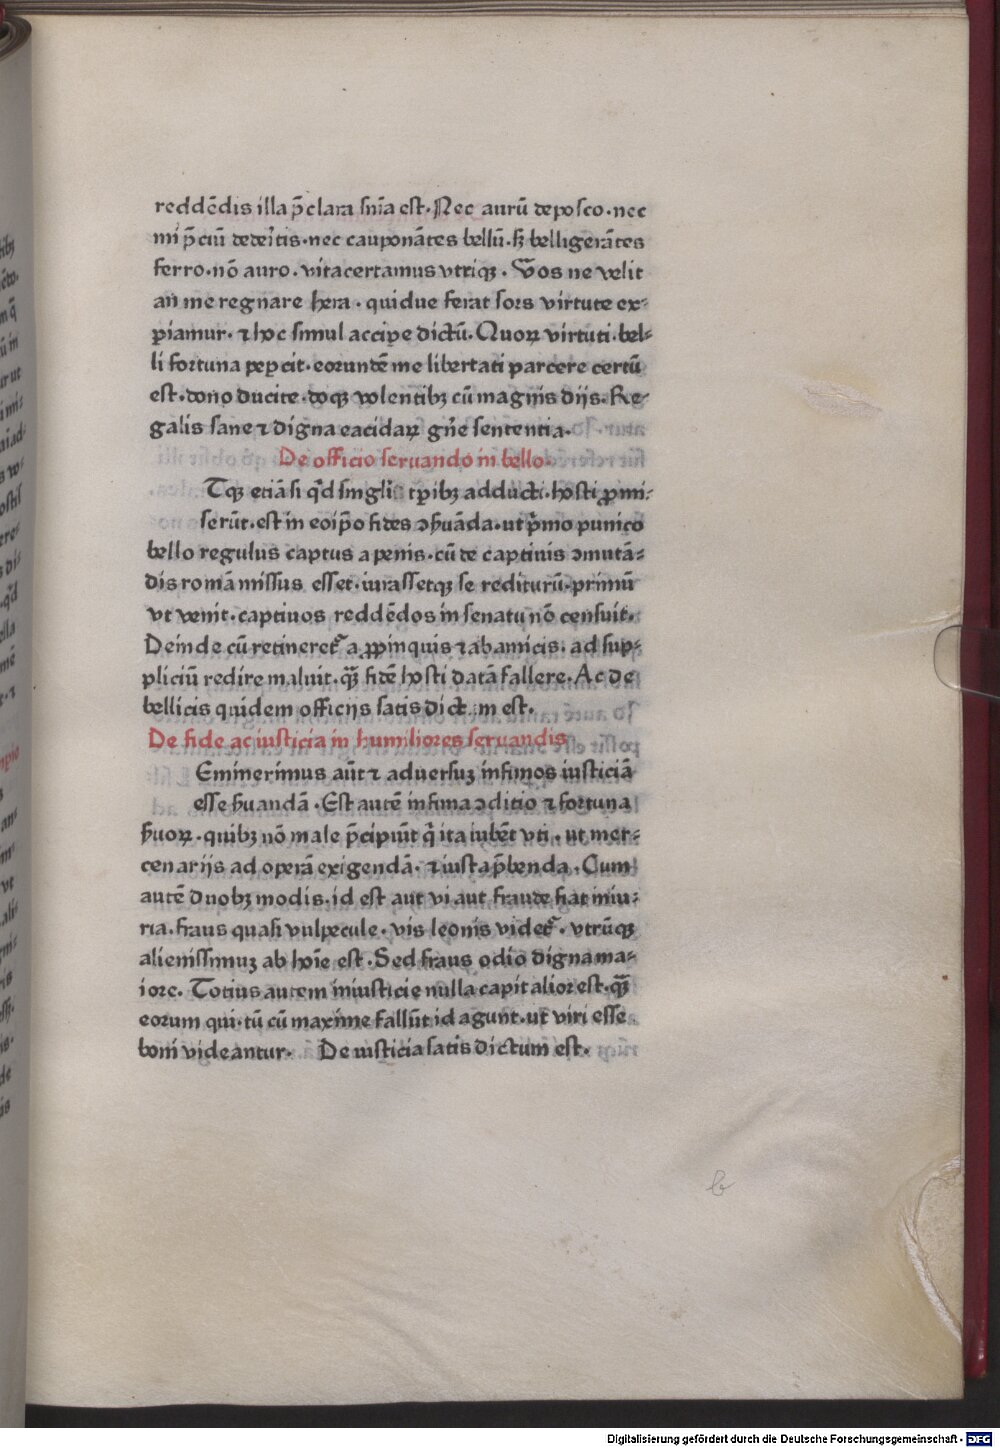 reddēdis illa p̄clara sn̄ia est. Nec aurū deposco. nec
mi p̄ciū dedeītis. nec cauponātes bellū. sꝫ belligerātes
ferro. nō auro. vita certamus vtriqꝫ. Vos ne velit
an me regnare hera. quidue ferat sors virtute ex-
piamur. ⁊ hoc simul accipe dictū. Quoꝝ virtuti. bel-
li fortuna pepcit. eorundē me libertati parcere certū
est. dono ducite. doqꝫ volentibꝫ cū magnis dijs. Re-
galis sane ⁊ digna eacidaꝝ gn̄e sententia.
De officio seruando in bello.
Tqꝫ etiā si qͥd singli tꝑibꝫ adducti. hosti ꝓmi-
serūt. est in eo ip̄o fides ↄẜuāda. ut pͥmo punico
bello regulus captus a penis. cū de captiuis ↄmutā-
dis romā missus esset. iurassetqꝫ se rediturū. primū
vt venit. captiuos reddēdos in senatu nō censuit.
Deinde cū retineret᷑ a ꝓpinquis ⁊ ab amicis. ad sup-
pliciū redire maluit. qᷓꝫ fidē hosti datā fallere. Ac de
bellicis quidem officijs satis dictum est.
De fide ac iusticia in humiliores seruandis
Eminerimus aūt ⁊ aduersuꝫ infimos iusticiā
esse ẜuandā. Est autē infima ↄditio ⁊ fortuna
ẜuoꝝ. quibꝫ nō male p̄cipiūt qͥ ita iubēt vti. ut mer-
cenarijs ad operā exigendā. ⁊ iusta p̄benda. Cum
autē duobꝫ modis. id est aut vi aut fraude fiat iniu-
ria. fraus quasi vulpecule. vis leonis videt᷑. vtrūqꝫ
alienissimuꝫ ab hoīe est. Sed fraus odio digna ma-
iore. Totius autem iniusticie nulla capitalior est. qᷓꝫ
eorum qui. tū cū maxime fallūt id agunt. ut viri esse
boni videantur. De iusticia satis dictum est.
b
Digitalisierung gefördert durch die Deutsche Forschungsgemeinschaft - DFG